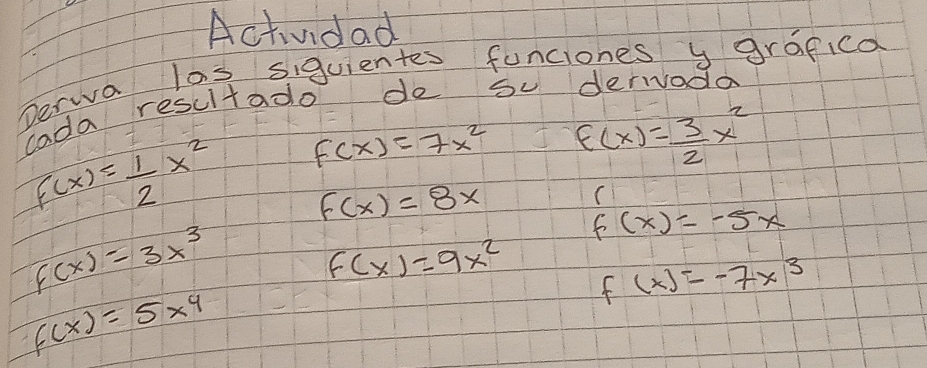 Actividad
Deriva las siguientes funciones y gráfica
cada resultado de su derivada
f(x)=1/2 x² f(x)=7x² f(x)=3/2 x²
f(x)=8x f(x)=-5x
f(x)=3x³ f(x)=9x² f(x)=-7x³
f(x)=5x⁴